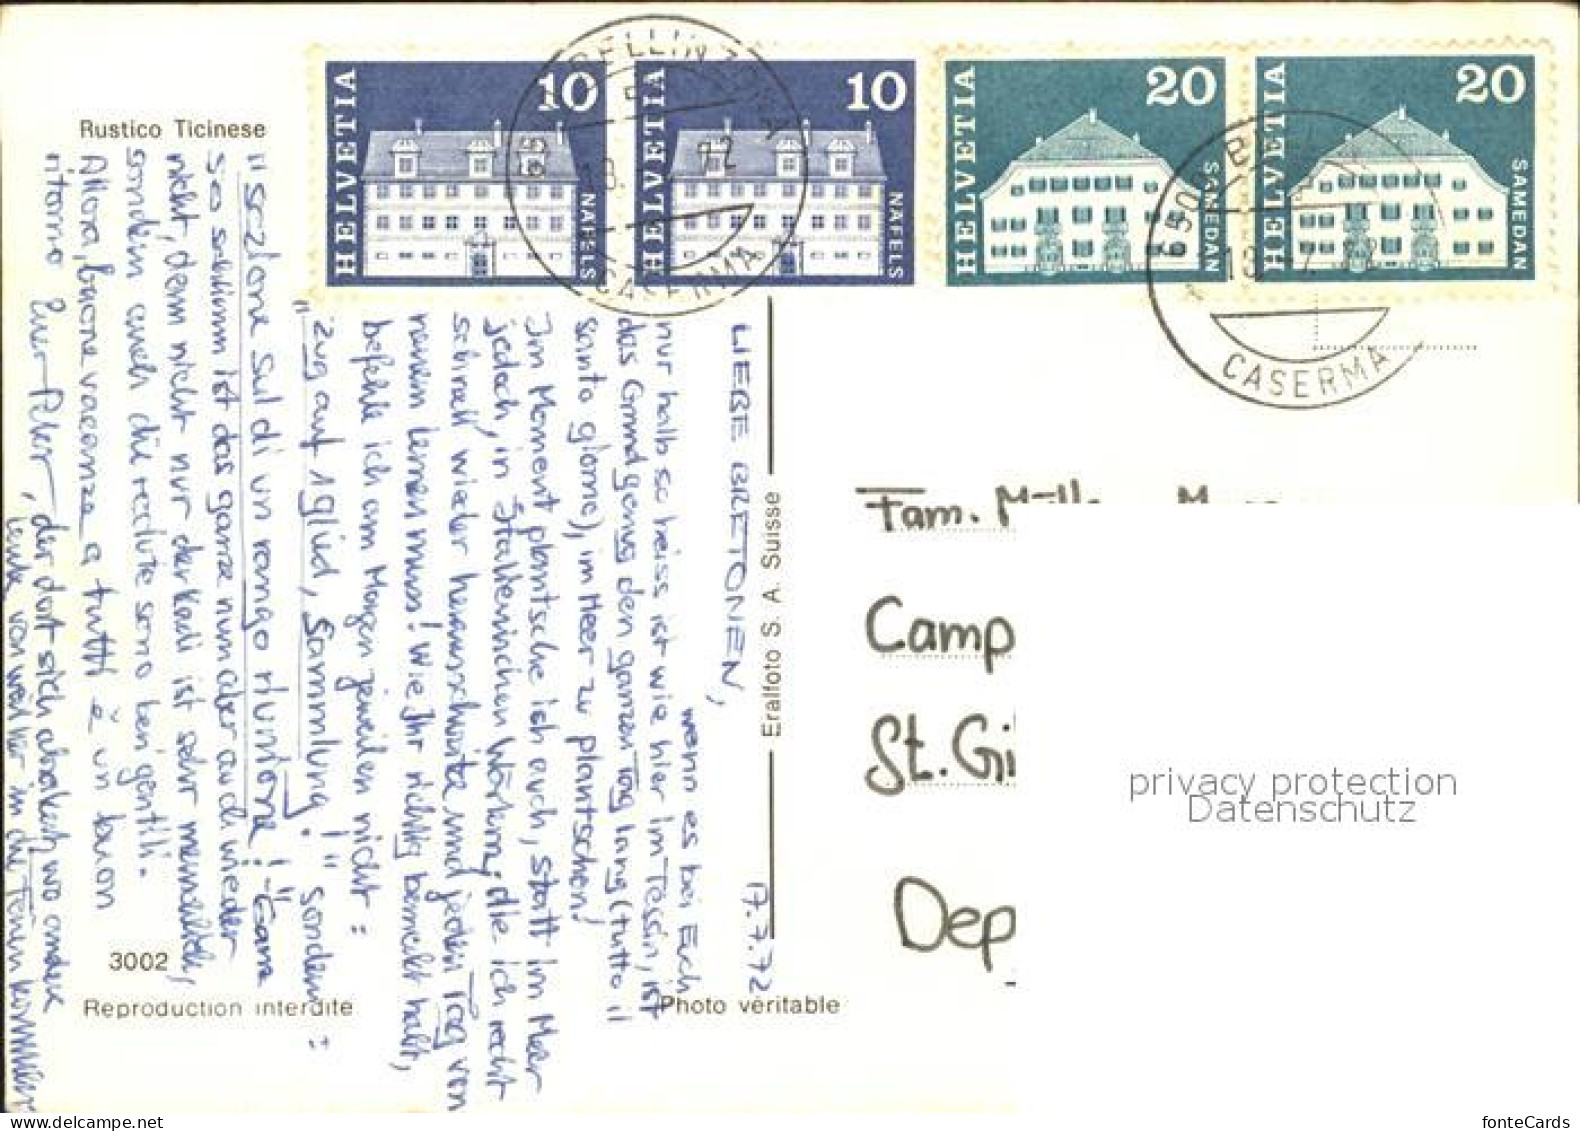 HELVETIA 10 NÄFELS
HELVETIA 10 NÄFELS
HELVETIA 20 SAMEDAN
HELVETIA 20 SAMEDAN
BELLINZONA
CASERMA
6500
CASERMA
Rustico Ticinese
17.7.72
LIEBE BRETONEN,
wenn es bei Euch
nur halb so heiss ist wie hier im Tessin, ist
das Grund genug den ganzen Tag lang (tutto il
santo giorno), im Meer zu plantschen!
Im Moment plantsche ich auch, statt im Meer
jedoch, in italienischen Wörtern, die ich recht
schnell wieder herausschwitze und jeden Tag von
neuem lernen muss! Wie Ihr richtig bemerkt habt,
befehle ich am Morgen jeweilen nicht:
"Zug auf 1 Glied, Sammlung!" sondern:
"sezione sul di un rango riunione!" Ganz
so schlimm ist das ganze nun aber auch wieder
nicht, denn nicht nur der Kadi ist sehr menschlich,
sondern auch die reclute sono ben gentili.
Allora, buone vacanze a tutti e un buon
ritorno Euer Peter, der dort sich abrackert wo andere
Leute von weit her in die Ferien kommen
Eralfoto S. A. Suisse
3002
Reproduction interdite
Photo véritable
Fam.
Camp
St. Gi
Dep
privacy protection
Datenschutz
fonteCards